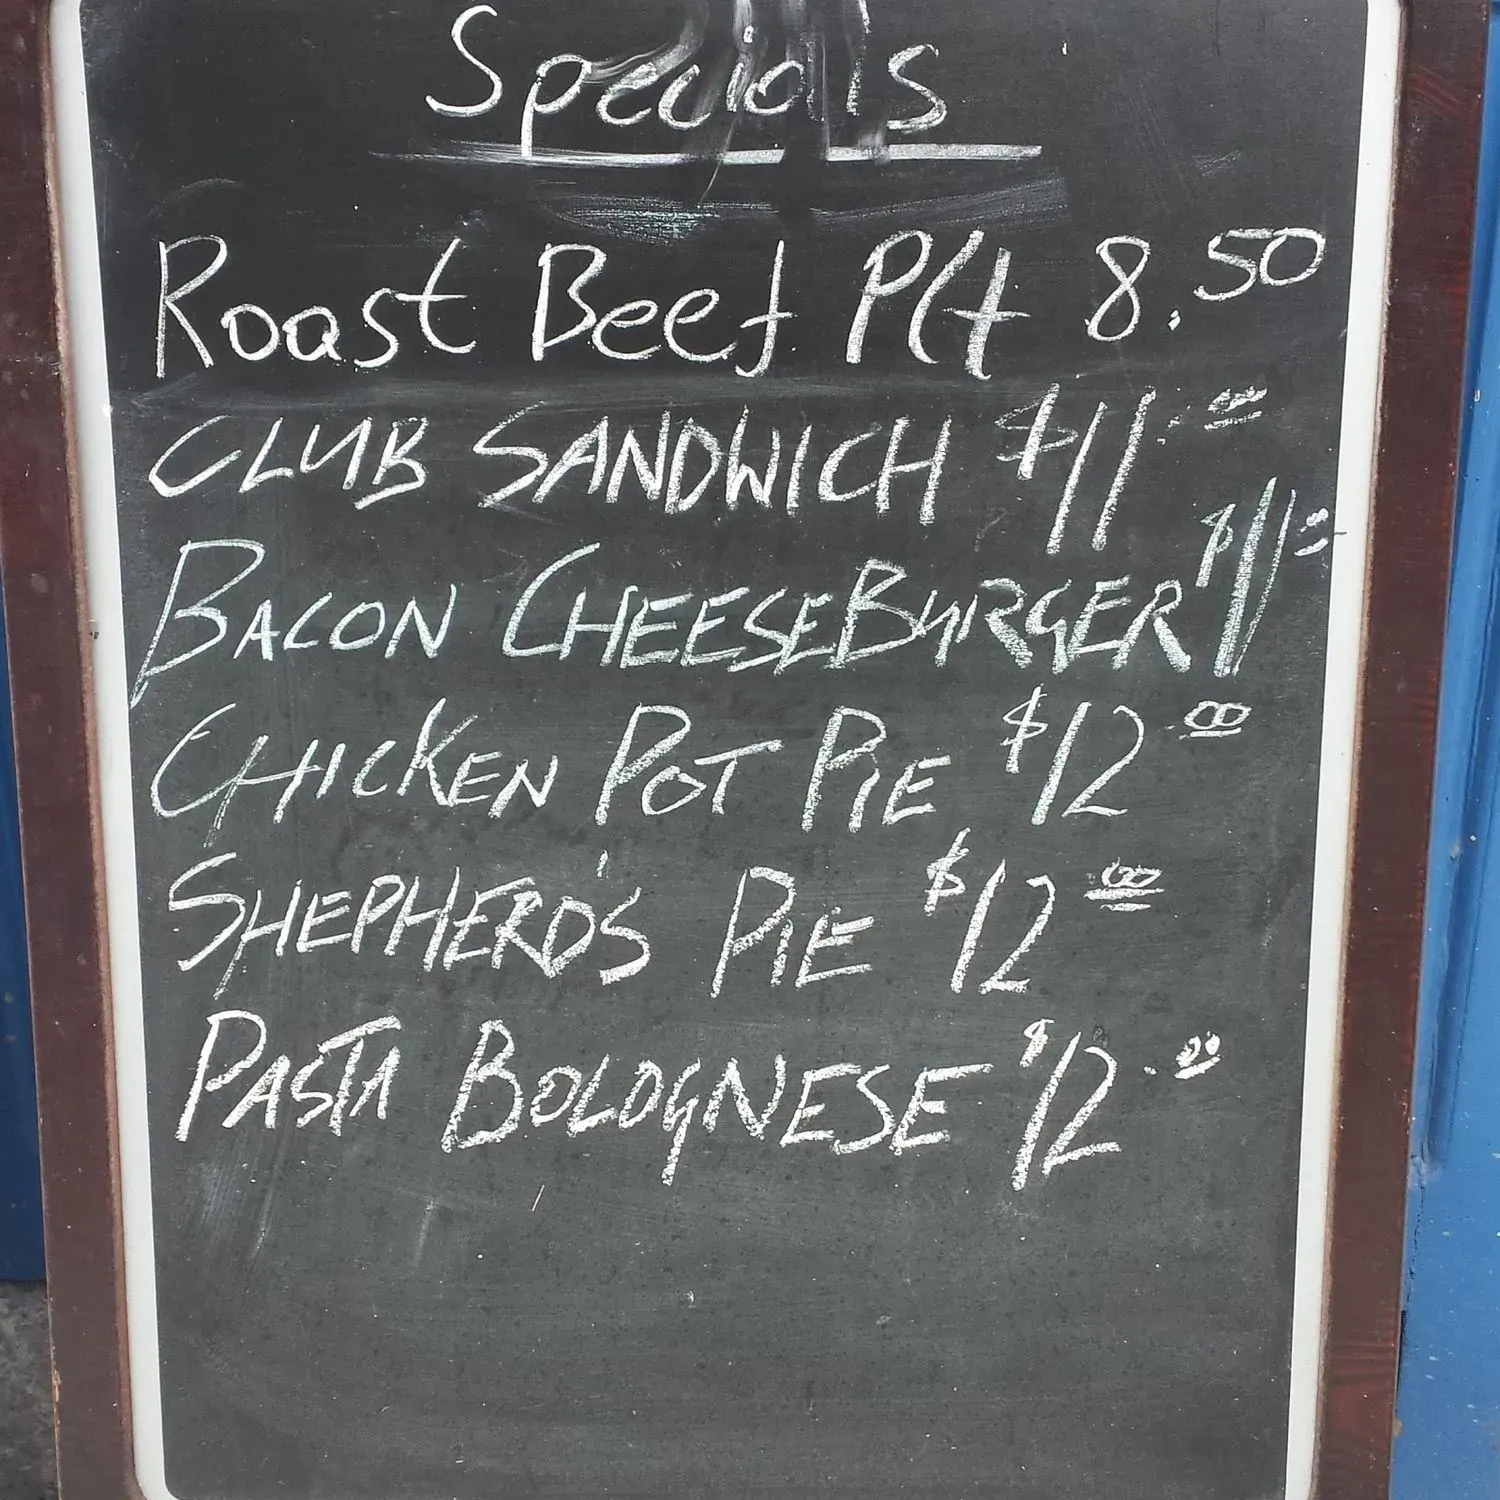 Specials
Roast Beef Plt 8.50
CLUB SANDWICH $11.00
BACON CHEESEBURGER $11.00
CHICKEN POT PIE $12 00
SHEPHERD'S PIE $12 00
PASTA BOLOGNESE $12.00